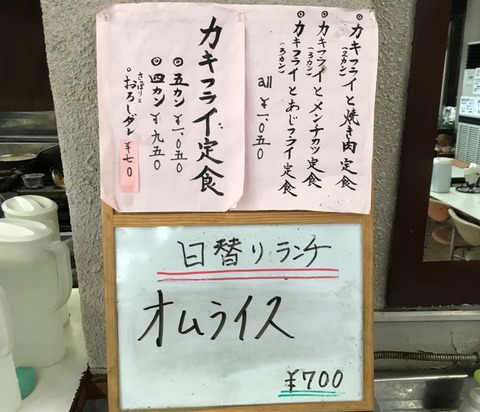 カキフライと焼き肉定食
(2カン)
カキフライとメンチカツ定食
(3カン)
カキフライとあじフライ定食
(3カン)
all ¥1.050
カキフライ定食
五カン ¥1.050
四カン ¥950
さっぱりと
おろしダレ ¥70
日替りランチ
オムライス
¥700